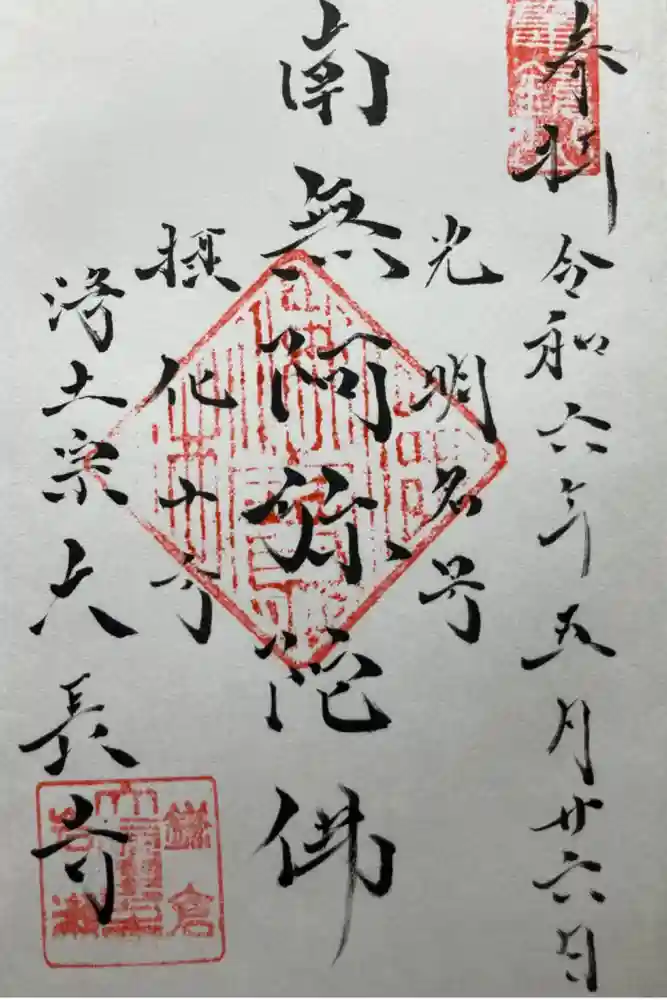 奉拝 令和六年五月廿六日
光明名号
南無阿弥陀佛
摂化十方
浄土宗大長寺
鎌倉
岩瀬